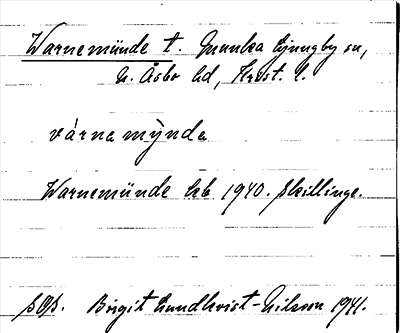 Warnemünde t. Munka Ljungby sn,
N. Åsbo hd, Krist. l.
várnamỳnde
Warnemünde hb 1940. Skillinge.
Birgit Lundkvist-Nilsson 1941.